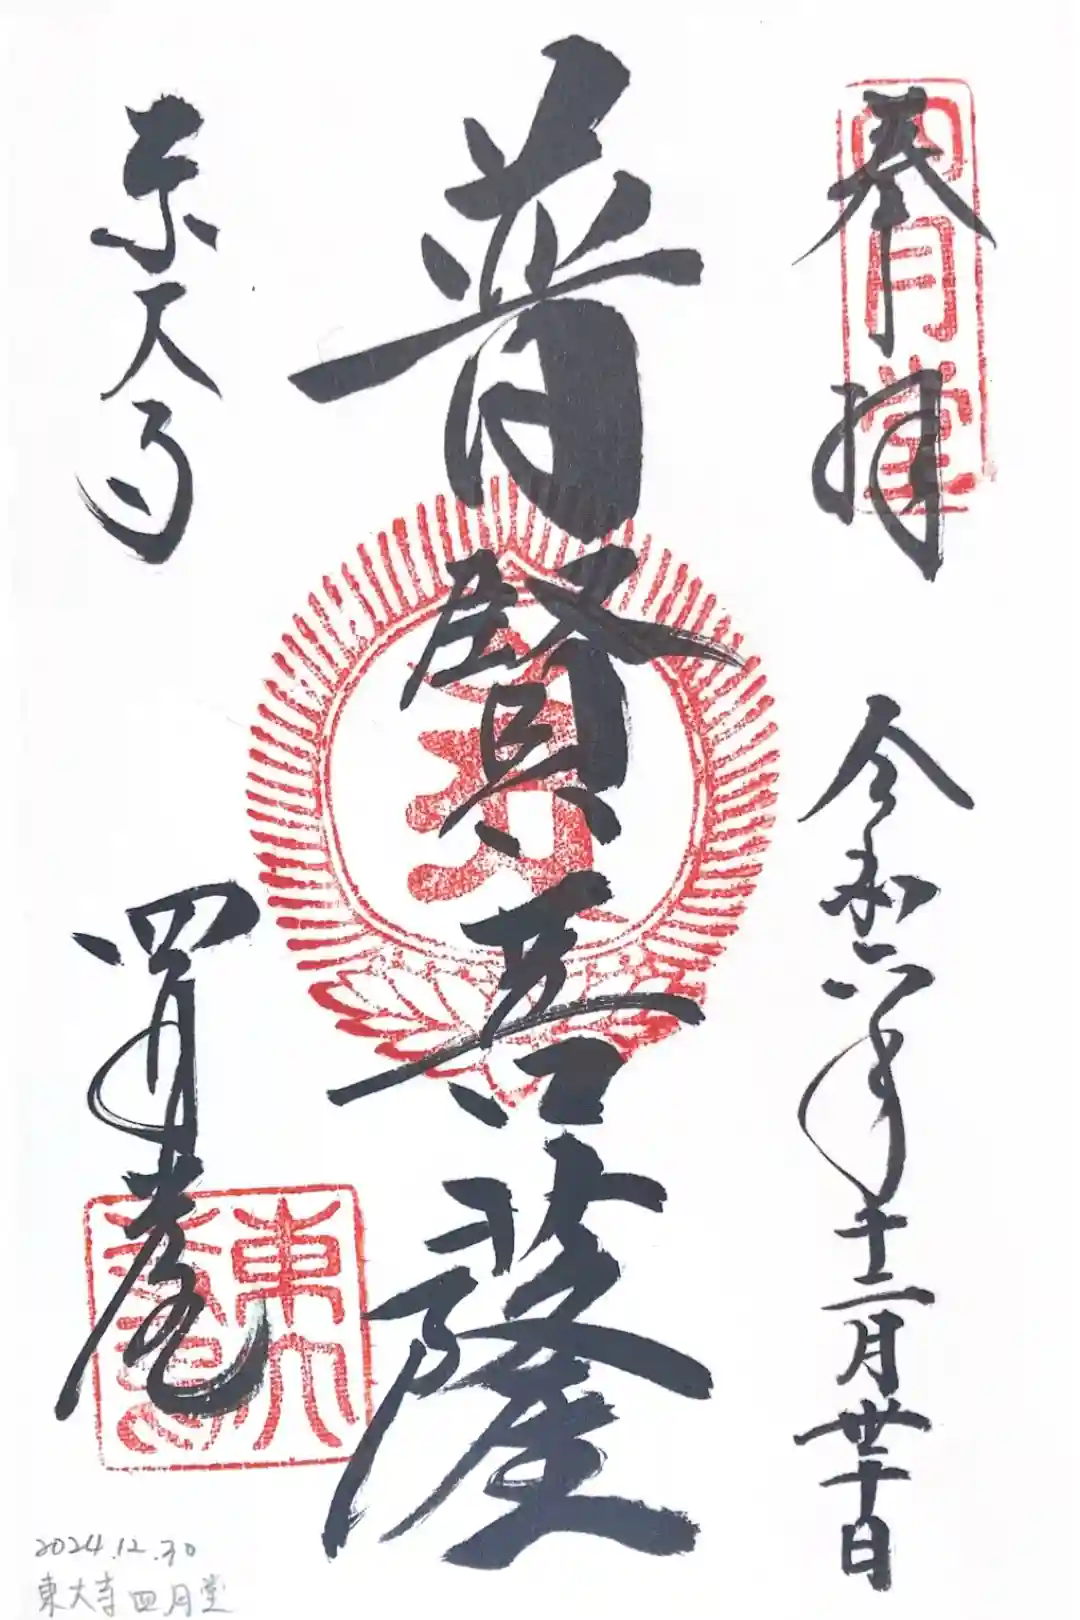 奉拝
四月堂
令和六年十二月三十日
普賢菩薩
東大寺
四月堂
東大寺
2024.12.30
東大寺四月堂